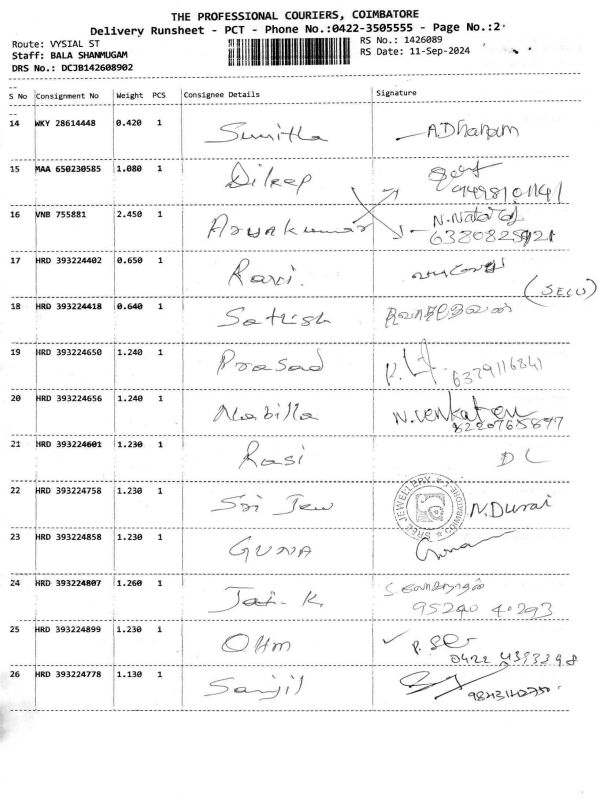 THE PROFESSIONAL COURIERS, COIMBATORE
Delivery Runsheet - PCT - Phone No.:0422-3505555 - Page No.:2
Route: VYSIAL ST
RS No.: 1426089
Staff: BALA SHANMUGAM
RS Date: 11-Sep-2024
DRS No.: DCJB142608902
S No Consignment No Weight PCS Consignee Details Signature
14 WKY 28614448 0.420 1 Sunitha A.Dhanam
15 MAA 650230585 1.080 1 Dileep
9498101141
16 VNB 755881 2.450 1 Arunkumar
17 HRD 393224402 0.650 1 Ravi.
18 HRD 393224418 0.640 1 Sathish
19 HRD 393224650 1.240 1 Prasad
6379116841
20 HRD 393224656 1.240 1 Nabilla
21 HRD 393224601 1.230 1 Rasi DL
22 HRD 393224758 1.230 1 Sri Jew N.Durai
SREE JEWELLERY COIMBATORE-1
23 HRD 393224858 1.230 1 GUNA
24 HRD 393224807 1.260 1 Jai. K.
95240 40293
25 HRD 393224899 1.230 1 OHM
26 HRD 393224778 1.130 1 Sanjil